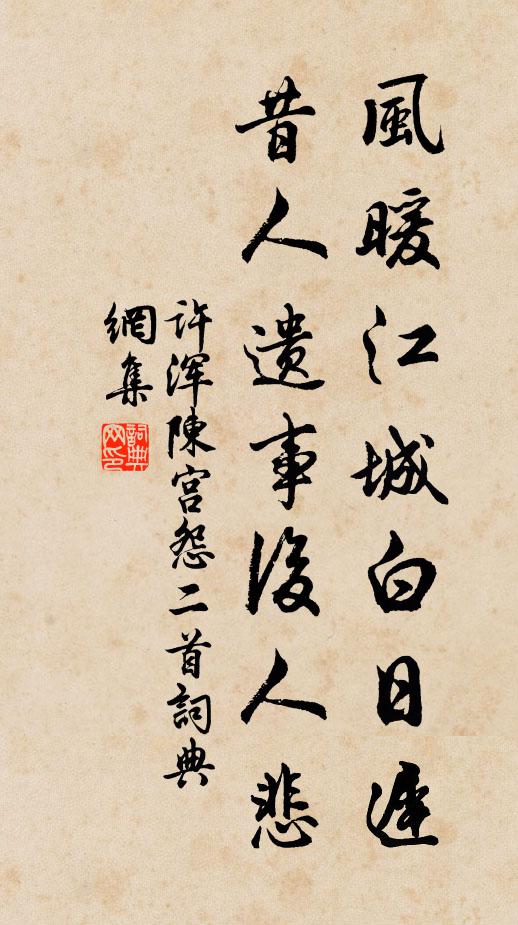 風暖江城白日遲
昔人遺事後人悲
许渾陳宮怨二首詞典
網集
詞典网印